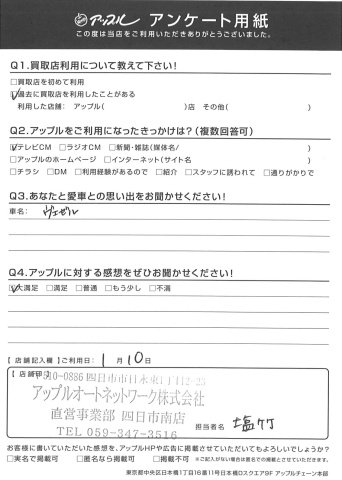 アップル アンケート用紙
この度は当店をご利用いただきありがとうございました。
Q1.買取店利用について教えて下さい!
□買取店を初めて利用
☑過去に買取店を利用したことがある
利用した店舗: アップル( )店 その他( )
Q2.アップルをご利用になったきっかけは?(複数回答可)
☑テレビCM □ラジオCM □新聞・雑誌(媒体名/ )
□アップルのホームページ □インターネット(サイト名 )
□チラシ □DM □利用経験があるので □紹介 □スタッフに誘われて □通りがかりで
Q3.あなたと愛車との思い出をお聞かせください!
車名: ヴェゼル
Q4.アップルに対する感想をぜひお聞かせください!
☑大満足 □満足 □普通 □もう少し □不満
【店舗記入欄】ご利用日: 1月10日
【店舗印】
510-0886 四日市市日永東1丁目12-23
アップルオートネットワーク株式会社
直営事業部 四日市南店
TEL 059-347-3516
担当者名 塩竹
お客様に書いていただいた感想を、アップルHPや広告に掲載させていただいてもよろしいでしょうか?
□実名で掲載可 □匿名なら掲載可 □掲載不可 ※ご記入がない場合は匿名での掲載とさせていただきます。
東京都中央区日本橋1丁目16番11号日本橋Dスクエア9F アップルチェーン本部